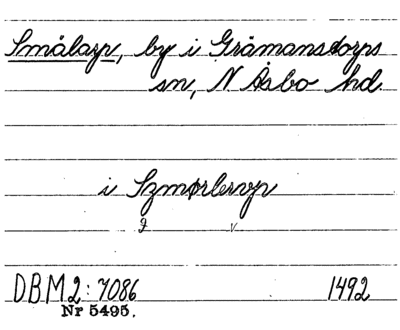 Smålarp, by i Gråmanstorps
sn, N Åsbo hd.
i Szmørlervp
DBM 2: 7086 1492
Nr 5495.